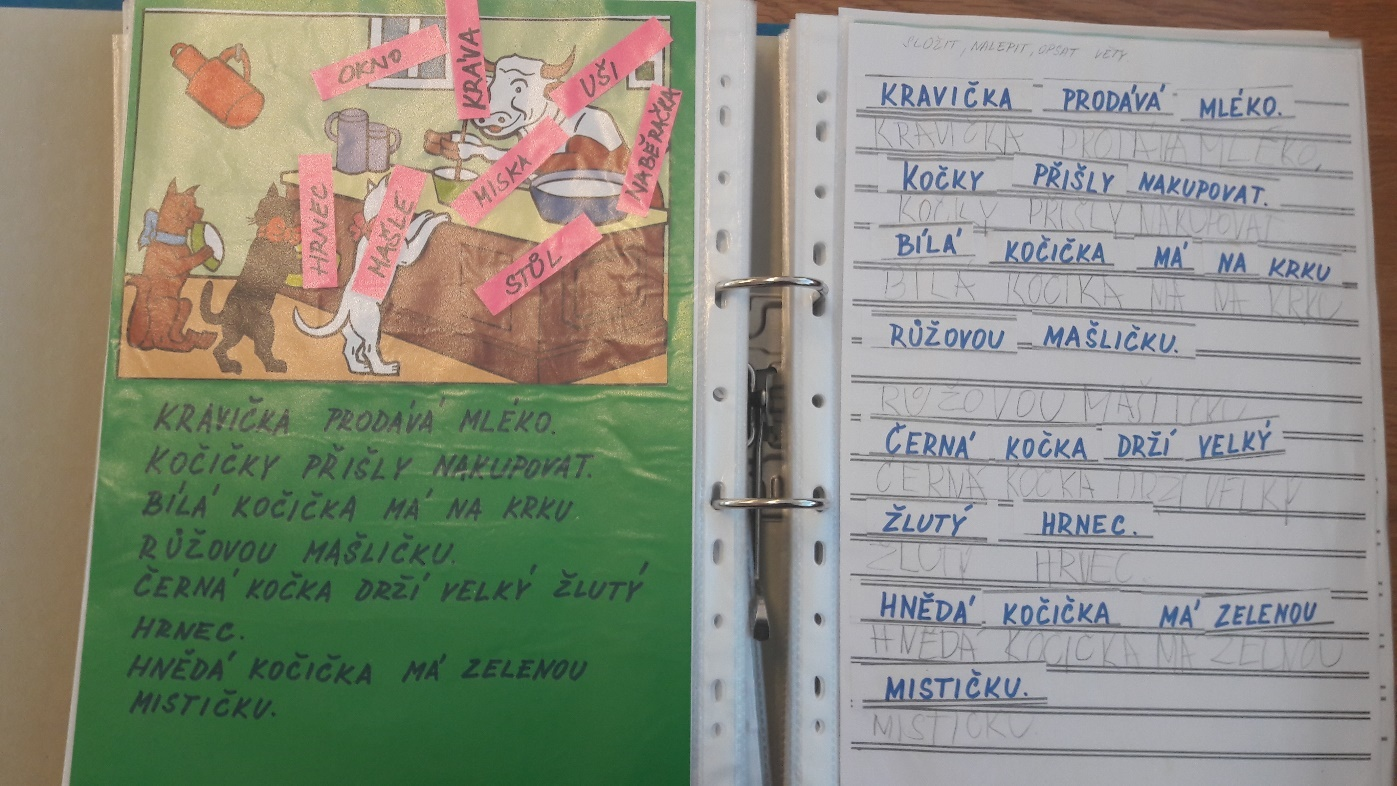 OKNO
KRÁVA
UŠI
NABĚRAČKA
MISKA
HRNEC
MAŠLE
STŮL
KRAVIČKA PRODÁVÁ MLÉKO.
KOČIČKY PŘIŠLY NAKUPOVAT.
BÍLÁ KOČIČKA MÁ NA KRKU
RŮŽOVOU MAŠLIČKU.
ČERNÁ KOČKA DRŽÍ VELKÝ ŽLUTÝ
HRNEC.
HNĚDÁ KOČIČKA MÁ ZELENOU
MISTIČKU.
SLOŽIT, NALEPIT, OPSAT VĚTY
KRAVIČKA PRODÁVÁ MLÉKO.
KRAVIČKA PRODAVA MLÉKO.
KOČKY PŘIŠLY NAKUPOVAT.
KOČKY PŘIŠLY NAKUPOVAT
BÍLÁ KOČIČKA MÁ NA KRKU
BÍLA KOČIKA MA NA KRKU
RŮŽOVOU MAŠLIČKU.
RŮŽOVOU MAŠLIČKU
ČERNÁ KOČKA DRŽÍ VELKÝ
ČERNÁ KOČKA DRŽÍ VELKÝ
ŽLUTÝ HRNEC.
ŽLUTÝ HRNEC.
HNĚDÁ KOČIČKA MÁ ZELENOU
HNĚDÁ KOČIČKA MA ZELNOU
MISTIČKU.
MISTIČKU